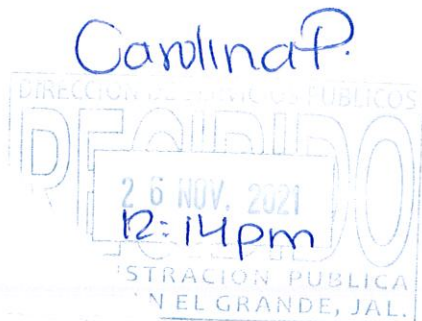 Carolina P.
DIRECCIÓN DE SERVICIOS PÚBLICOS
RECIBIDO
26 NOV. 2021
12:14pm
STRACIÓN PÚBLICA
N EL GRANDE, JAL.